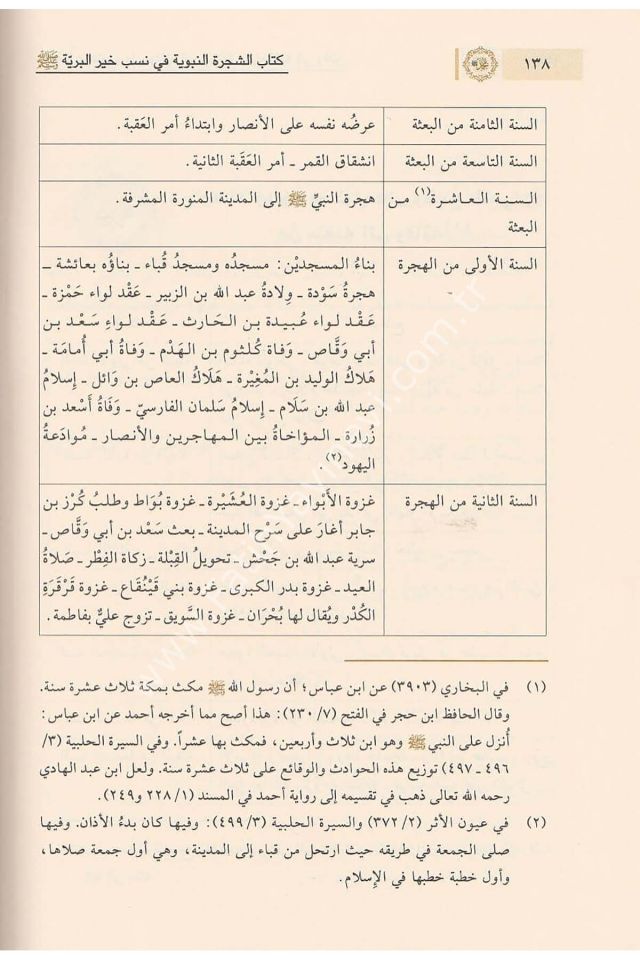 ١٣٨
كتاب الشجرة النبوية في نسب خير البريّة ﷺ
السنة الثامنة من البعثة
عرضُه نفسه على الأنصار وابتداءُ أمر العَقبة.
السنة التاسعة من البعثة
انشقاق القمر ـ أمر العَقَبة الثانية.
السـنـة العـاشـرة(١) مـن
البعثة
هجرة النبيِّ ﷺ إلى المدينة المنورة المشرفة.
السنة الأولى من الهجرة
بناءُ المسجديْن: مسجدُه ومسجدُ قُباء ـ بناؤه بعائشة ـ
هجرةُ سَوْدة ـ وِلادةُ عبد الله بن الزبير ـ عَقْد لواء حَمْزة ـ
عَقْـد لـواء عُبيـدة بـن الحَـارث ـ عَـقْـد لـواءِ سَعْـد بـن
أبي وَقَّاص ـ وَفـاة كُلثوم بن الهَدْم ـ وَفاةُ أبي أُمامَة ـ
هَلَاكُ الوليد بن المُغِيْرة ـ هَلَاكُ العاص بن وَائل ـ إسلامُ
عبد الله بن سَلَام ـ إسلام سَلمان الفارسيّ ـ وَفَاةُ أَسْعد بن
زُرارة ـ المـؤاخـاةُ بين المهاجرين والأنصـار ـ مُوادَعـةُ
اليهود(٢).
السنة الثانية من الهجرة
غزوة الأَبْواء ـ غزوة العُشَيْرة ـ غزوة بُوَاط وطلبُ كُرْز بن
جابر أغارَ على سَرْح المدينة ـ بعث سَعْد بن أبي وَقَّاص ـ
سرية عبد الله بن جَحْش ـ تحويلُ القِبْلة ـ زكاة الفِطْر ـ صَلاةُ
العيد ـ غزوة بدر الكبرى ـ غزوة بني قَيْنُقَاع ـ غزوة قَرْقَرَةِ
الكُدْر ويُقال لها بُحْرَان ـ غزوة السَّويق ـ تزوج عليٌّ بفاطمة.
(١) في البخاري (٣٩٠٣) عن ابن عباس؛ أن رسول الله ﷺ مكث بمكة ثلاث عشرة سنة.
وقال الحافظ ابن حجر في الفتح (٧/ ٢٣٠): هذا أصح مما أخرجه أحمد عن ابن عباس:
أُنزل على النبي ﷺ وهو ابن ثلاث وأربعين، فمكث بها عشراً. وفي السيرة الحلبية (٣/
٤٩٦ ـ ٤٩٧) توزيع هذه الحوادث والوقائع على ثلاث عشرة سنة. ولعل ابن عبد الهادي
رحمه الله تعالى ذهب في تقسيمه إلى رواية أحمد في المسند (١/ ٢٢٨ و٢٤٩).
(٢) في عيون الأثر (٢/ ٣٧٢) والسيرة الحلبية (٣/ ٤٩٩): وفيها كان بدءُ الأذان. وفيها
صلى الجمعة في طريقه حيث ارتحل من قباء إلى المدينة، وهي أول جمعة صلاها،
وأول خطبة خطبها في الإسلام.